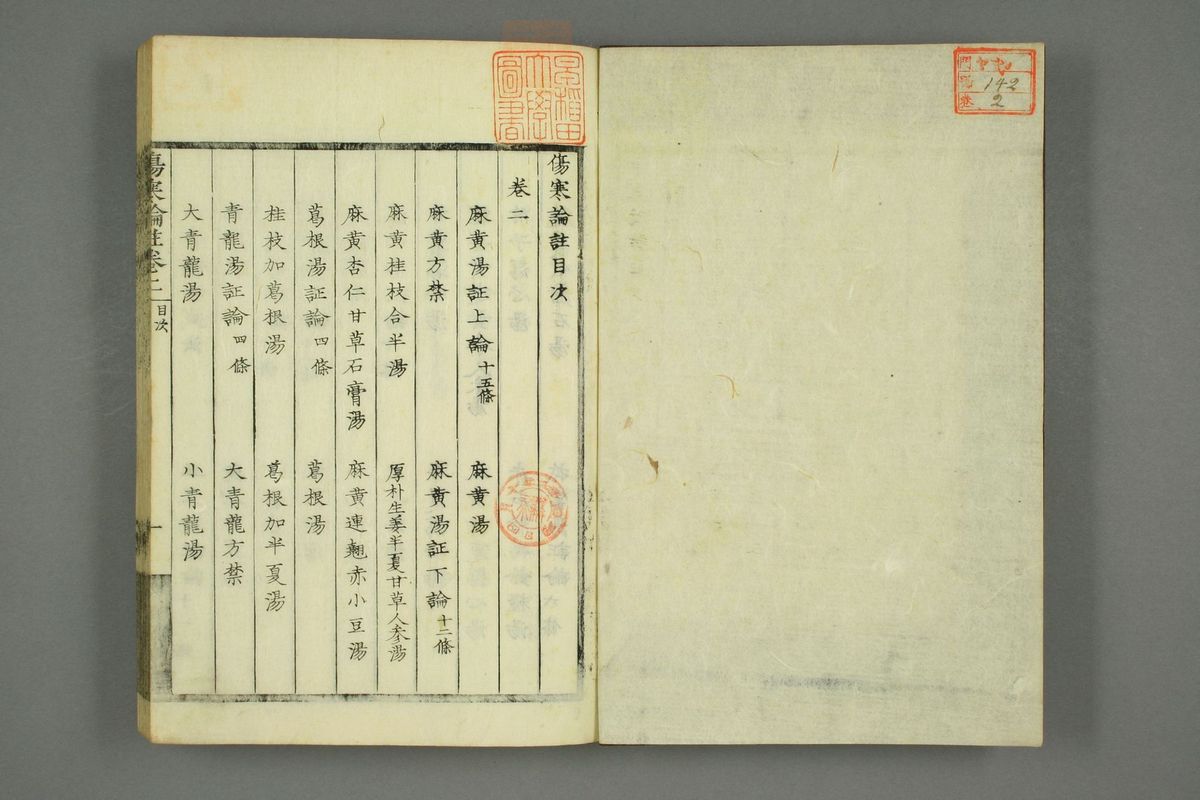 傷寒論註目次
卷二
麻黄湯証上論十五條 麻黄湯
麻黄方禁 麻黄湯証下論十二條
麻黄桂枝合半湯 厚朴生姜半夏甘草人参湯
麻黄杏仁甘草石膏湯 麻黄連翹赤小豆湯
葛根湯証論四條 葛根湯
桂枝加葛根湯 葛根加半夏湯
青龍湯証論四條 大青龍方禁
大青龍湯 小青龍湯
傷寒論註卷二 目次 一
早稲田大學圖書
門
號 142
卷 2